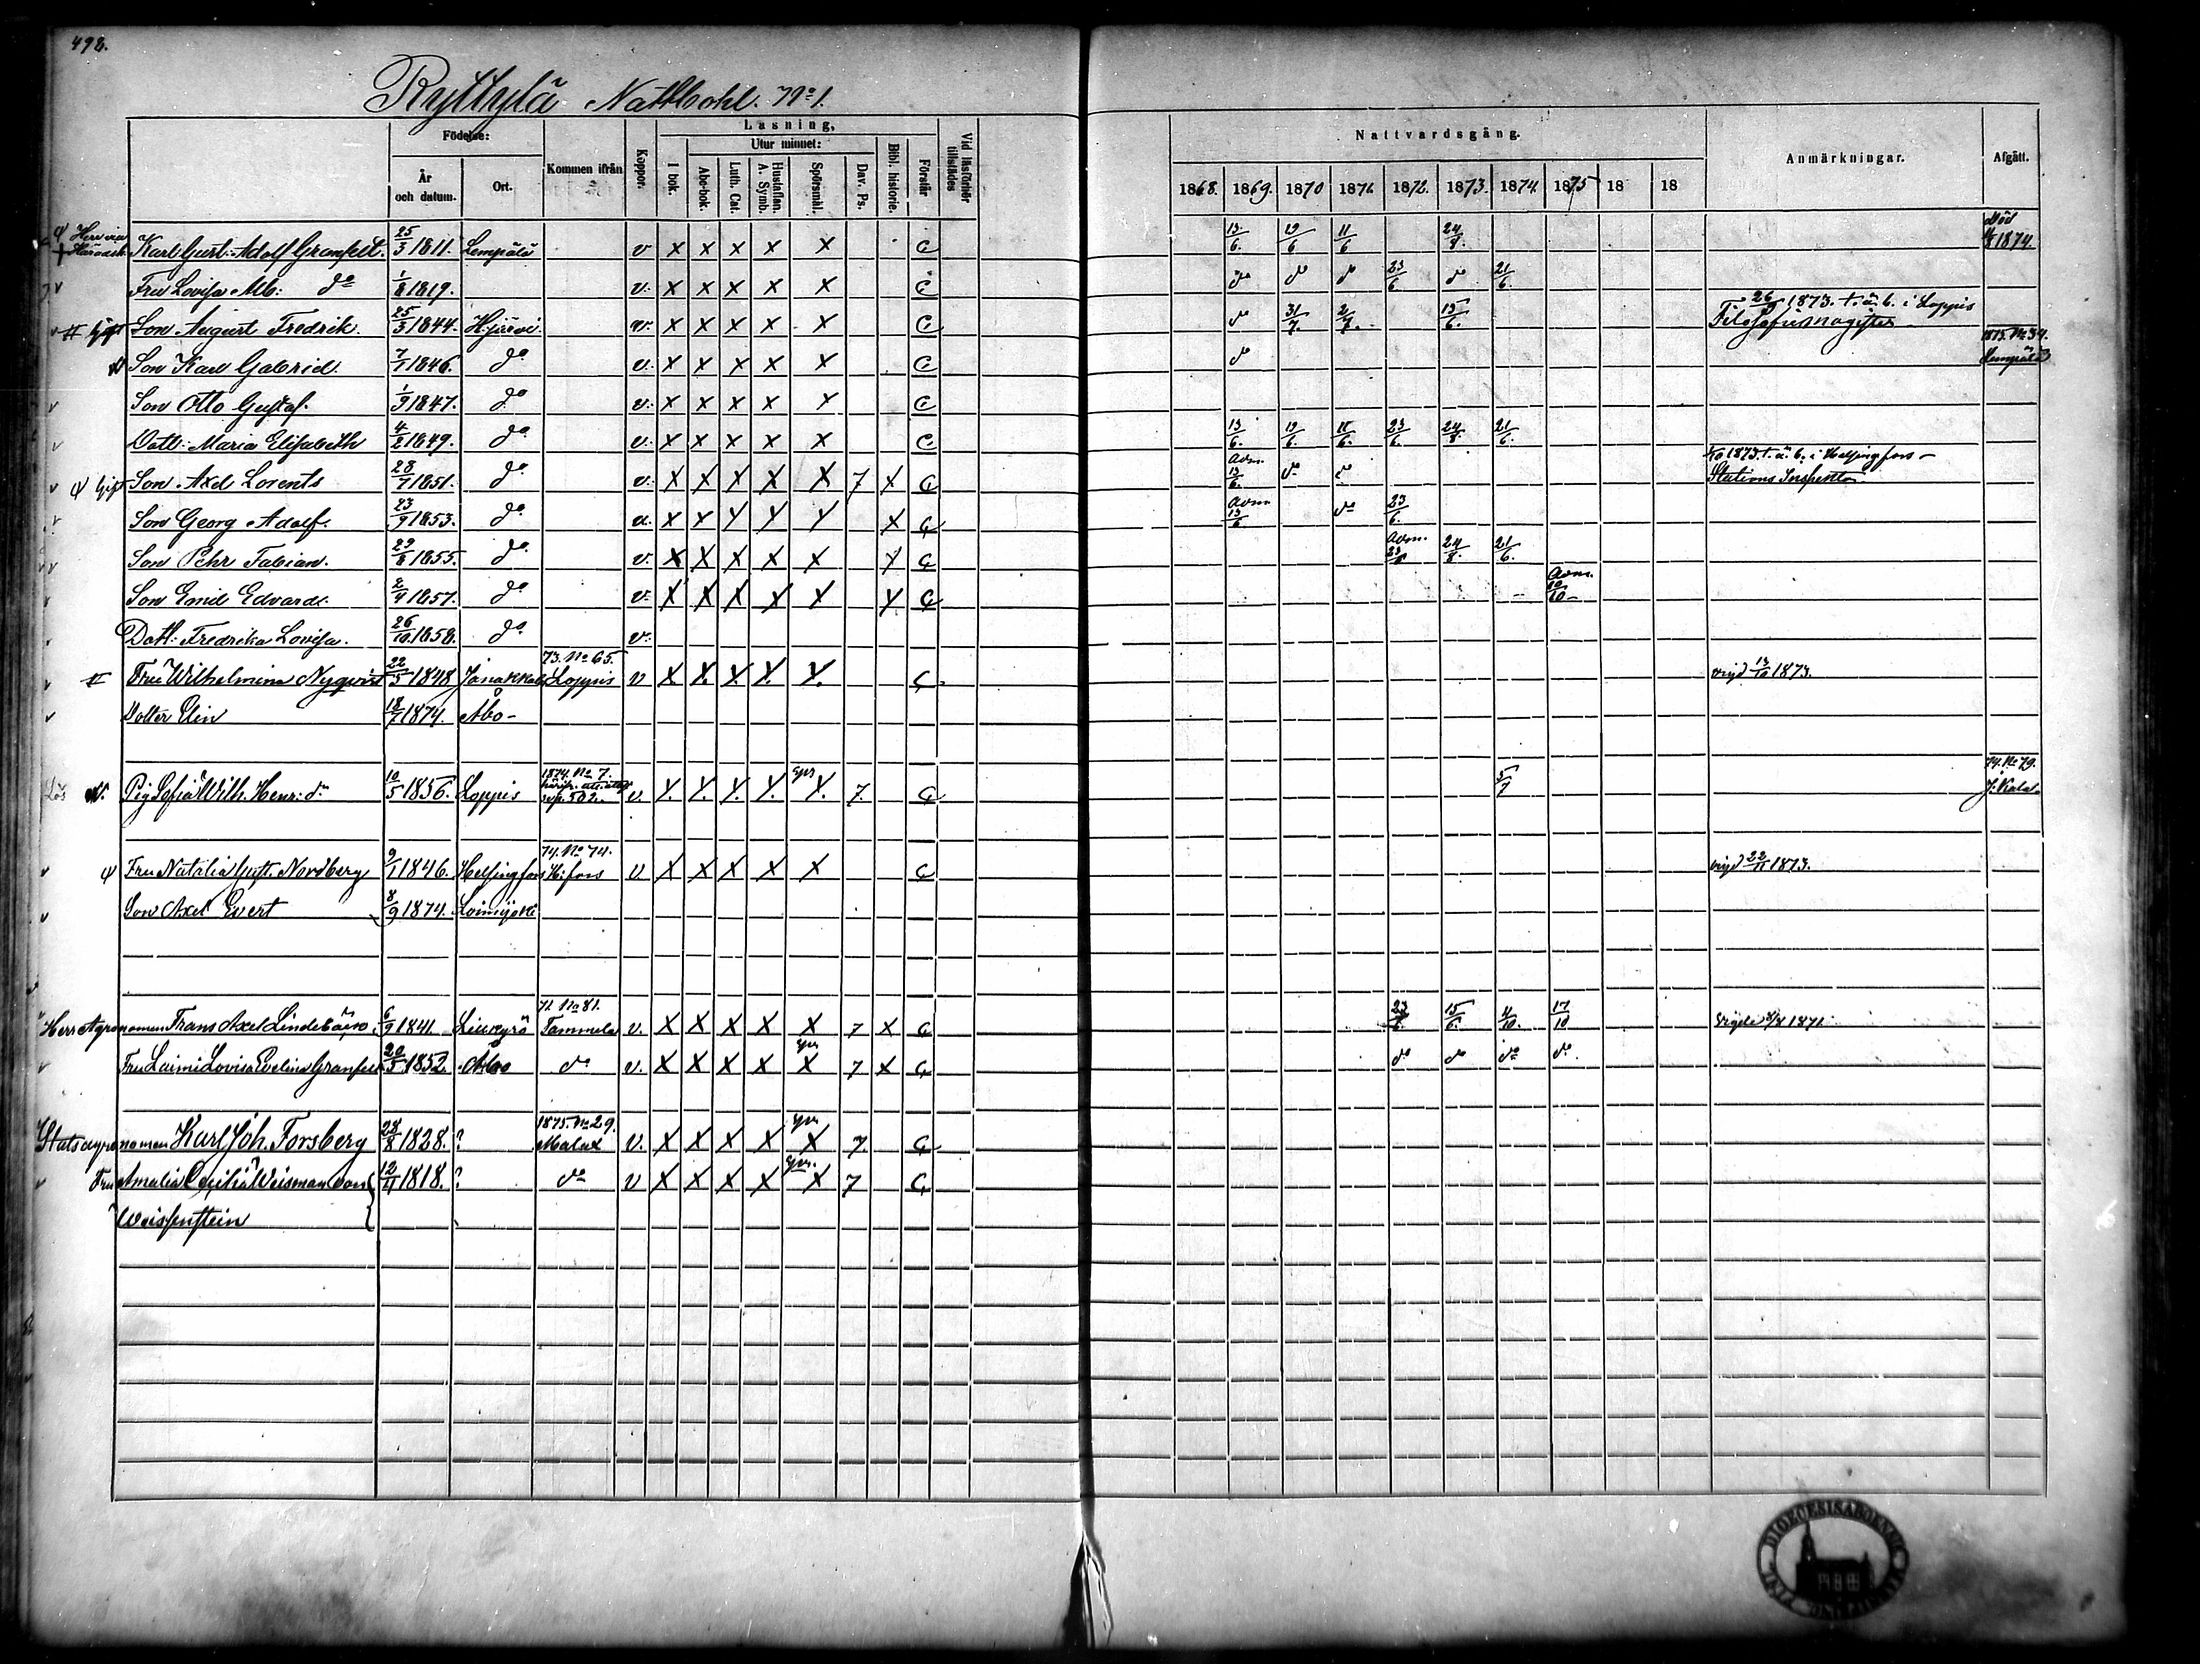 498.
Ryttylä Nattbohl. No 1.
Födelse:
År och datum.
Ort.
Kommen ifrån
Koppor.
Läsning,
I bok.
Utur minnet:
Abc-bok.
Luth. Cat.
Hustaflan. A. Symb.
Spörsmål.
Dav. Ps.
Bibl. historie.
Förstår
Vid läsförhör tillstädes
Nattvardsgång.
1868. 1869. 1870 1871 1872. 1873. 1874. 1875 18 18
Anmärkningar.
Afgått.
Karl Gust. Adolf Granfelt. 25/3 1811. Lempälä v x x x x x C 13/6. 19/6 11/6 24/8. Död 1874.
Fru Lovisa Alb: do 1/8 1819. v. x x x x x C do do do 23/6 do 21/6
Gift Son August Fredrik 25/3 1844. Hjärvi v. x x x x x C do 31/7. 2/7. 15/6. 26 1873. t. ä. b. i Loppis Filosofiemagister
Son Karl Gabriel 7/7 1846. do v. x x x x x C do 1875. No 34. Lempälä
Son Otto Gustaf. 1/9 1847. do v. x x x x x C
Dott: Maria Elisabeth 4/2 1849. do v. x x x x x C 13/6. 19/6 11/6. 23/6. 24/8. 21/6.
Gift Son Axel Lorents 28/7 1851. do v. x x x x x 7 x C Adm. 13/6. do do 1873. t. ä. b. i Helsingfors Stations Inspektor
Son Georg Adolf. 23/9 1853. do v. x x x x x x C Adm 13/6 do 23/6.
Son Pehr Fabian. 29/8 1855. do v. x x x x x x C Adm. 23/6 24/8. 21/6.
Son Emil Edvard. 2/4 1857. do v. x x x x x x C Adm. 10/10
Dott: Fredrika Lovisa. 26/10 1858. do v.
Fru Wilhelmina Nyqvist 22/5 1848 Janakkala 73. No 65. Loppis v x x x x x C vigd 13/10 1873.
Dotter Elin 18/7 1874. Åbo
Pig Sofia Wilh. Henr: dr 10/5 1856. Loppis 1874. No 7. v. x x x x x 7. C 5/7 74. No 79.
Fru Natalia Gust. Nordberg 9/1 1846. Helsingfors 74. No 74. H:fors v x x x x x C vigd 22/11 1873.
Son Axel Evert 8/9 1874. Loimijoki
Herr Agronomen Frans Axel Lindebäck 6/9 1841. 71. No 81. Tammela v. x x x x x 7 x C 23/6. 15/6. 4/10. 17/10 Vigde 1871
Fru Laimi Lovisa Evelina Granfelt 20/5 1852. Åbo do v. x x x x x 7 x C do do do do
Statsagronomen Karl Joh. Forsberg 28/8 1828. ? 1875. No 29. Malax v. x x x x x 7. C
Fru Amalia Cecilia Weisman von 12/4 1818. ? do v x x x x x 7 C
Weissenstein